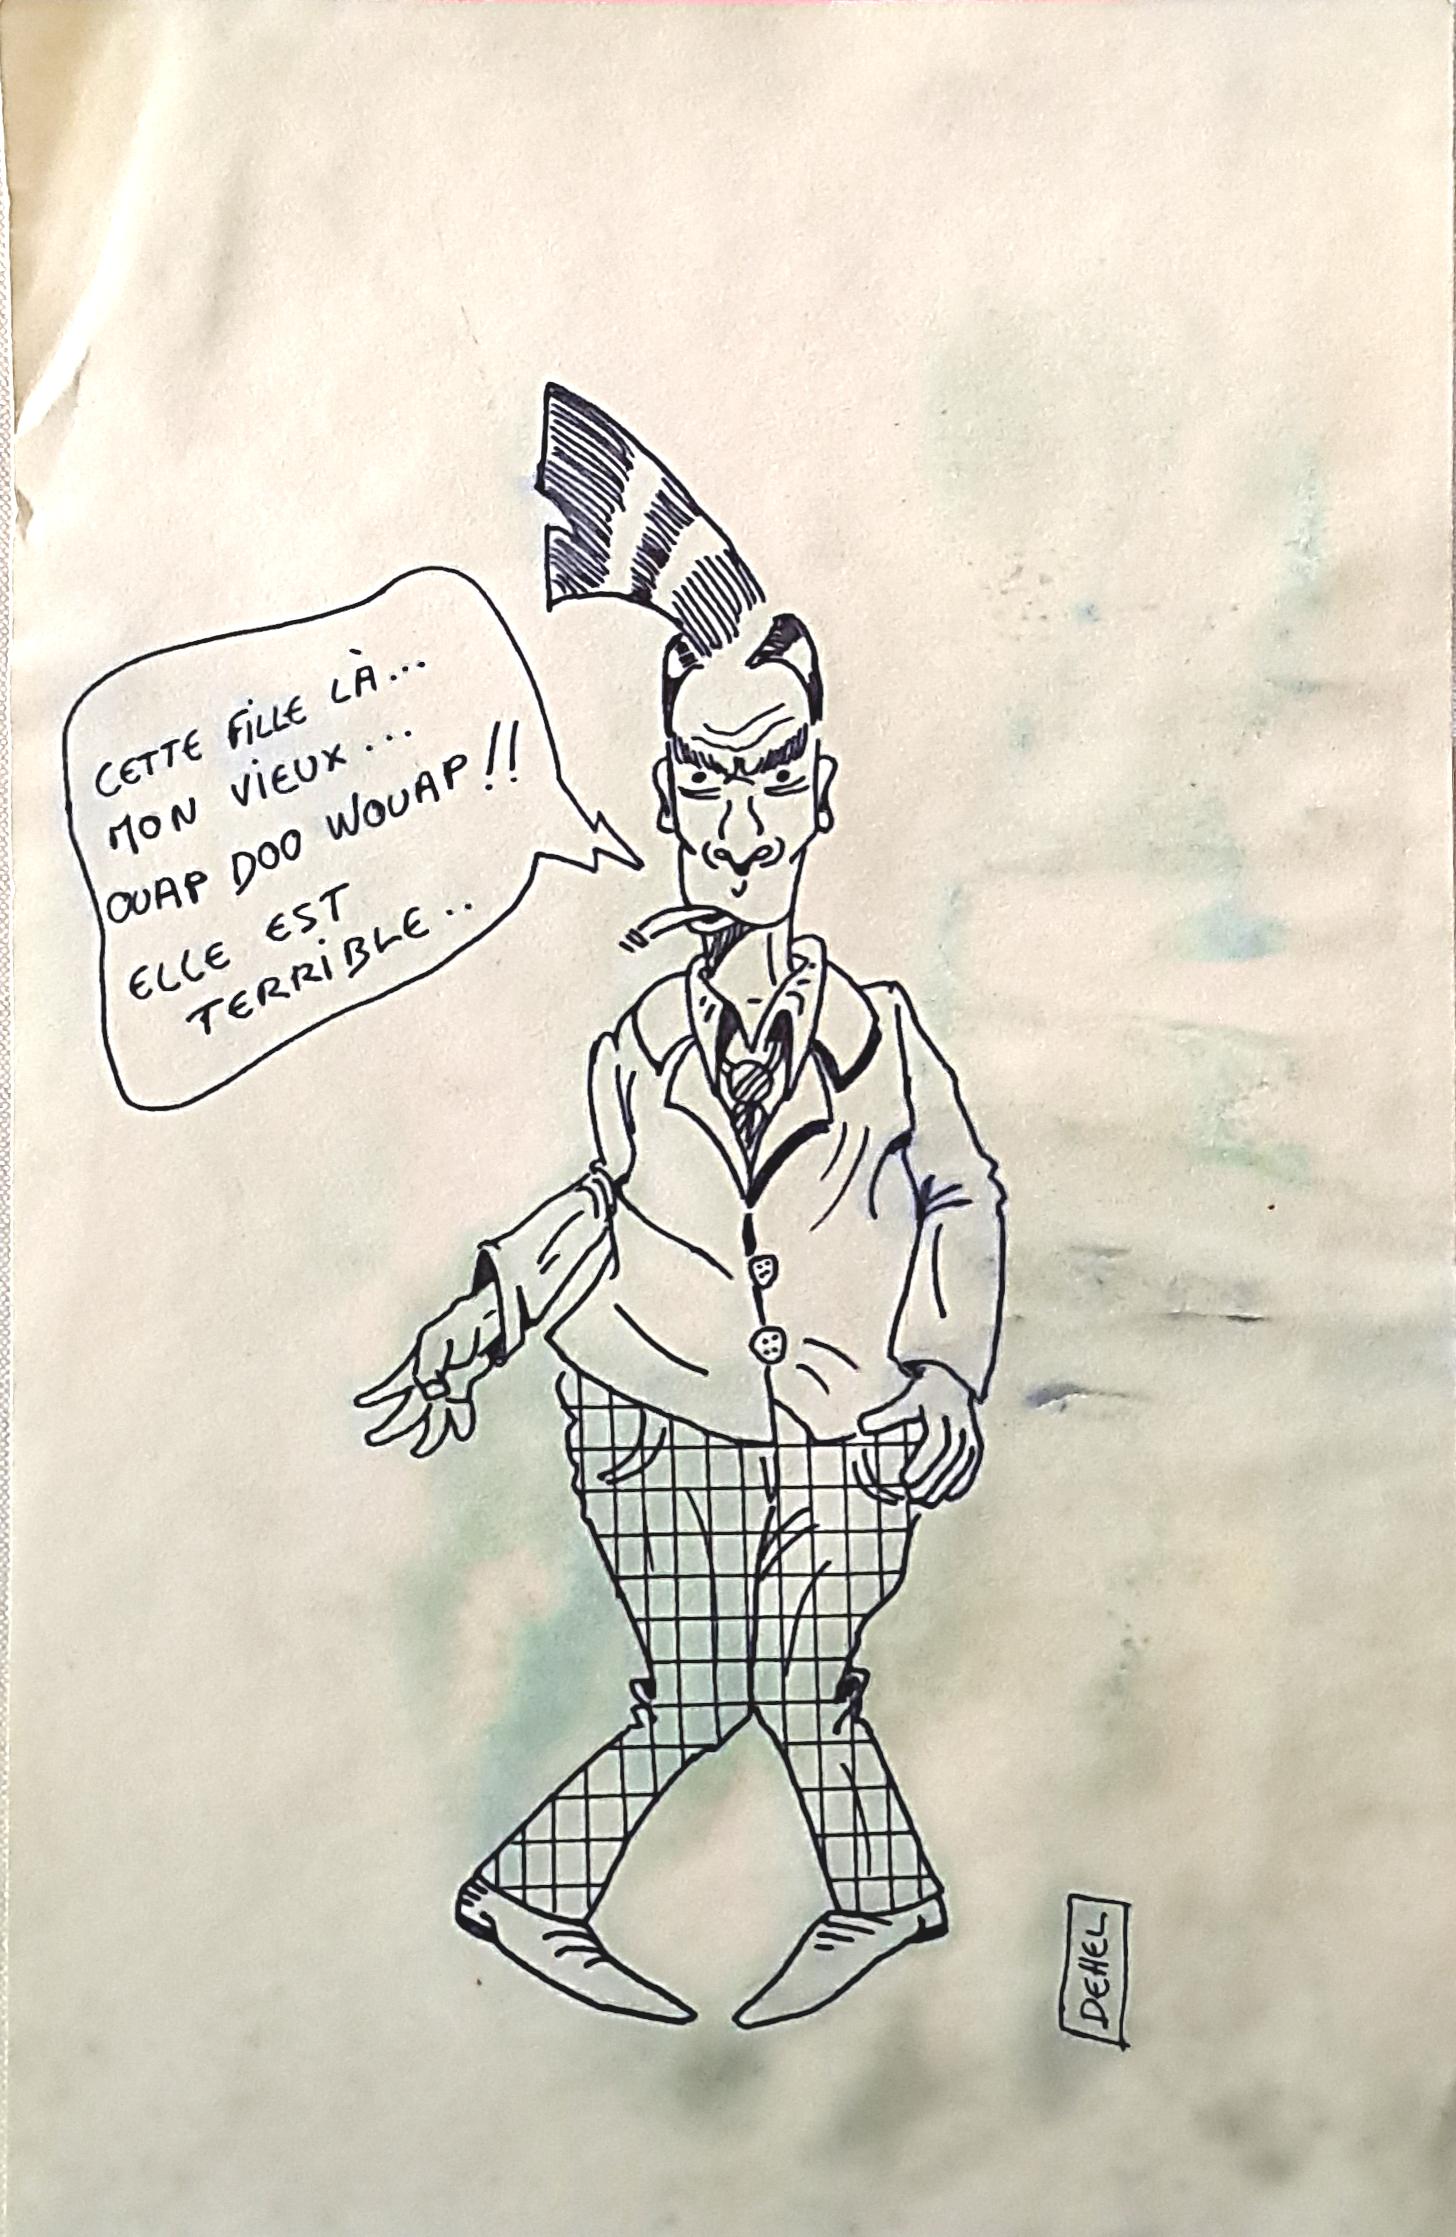 CETTE FILLE LÀ...
MON VIEUX...
OUAP DOO WOUAP!!
ELLE EST
TERRIBLE..
DEHEL